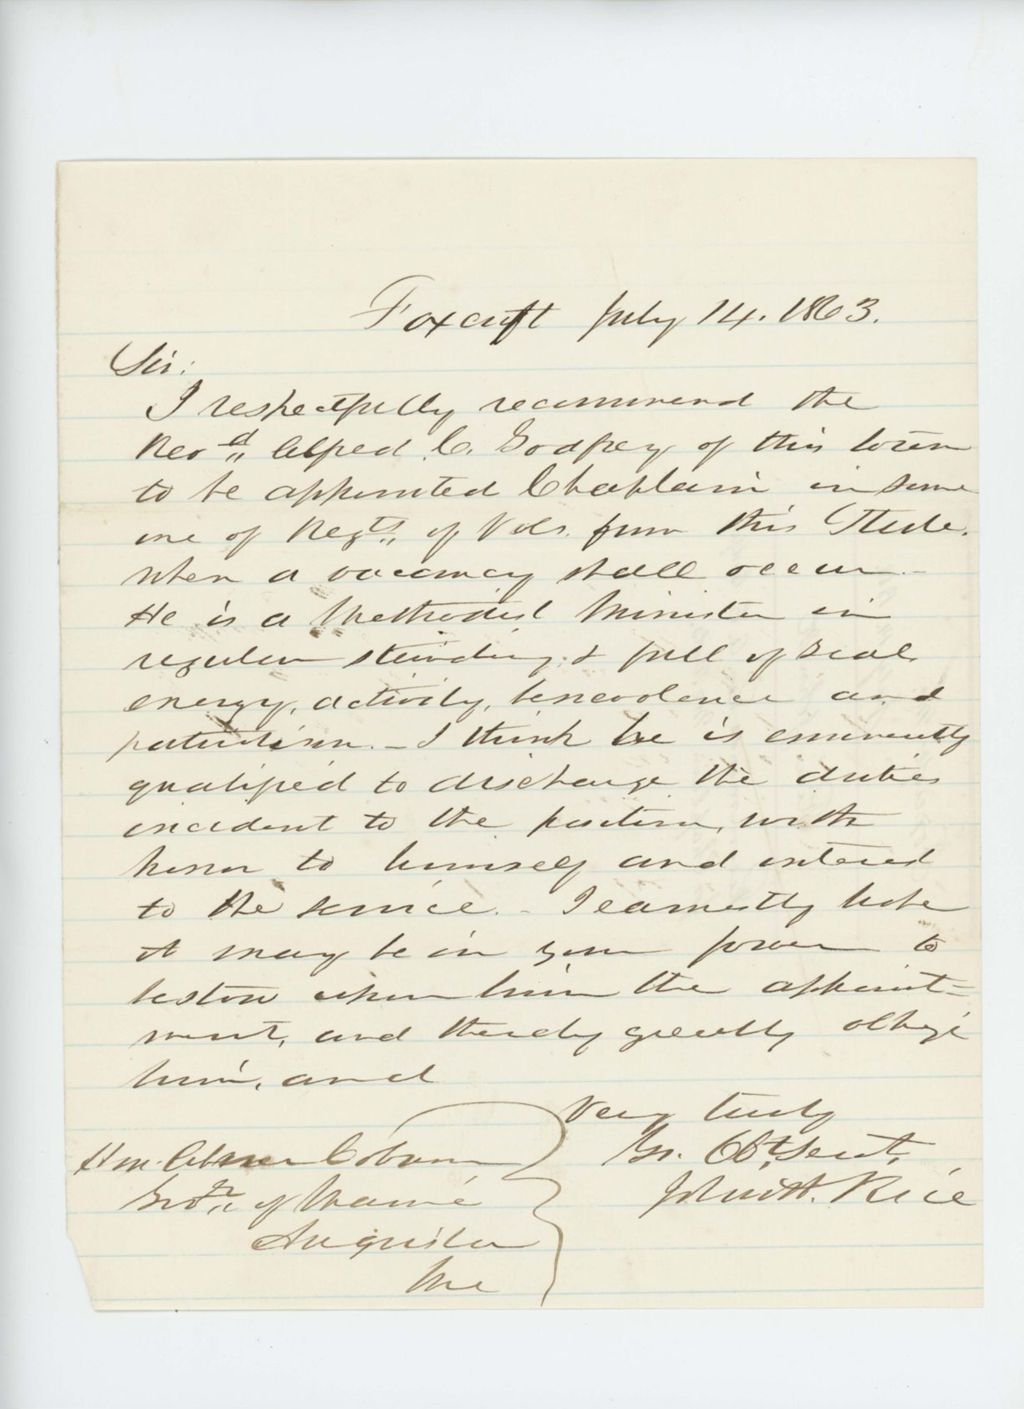 Foxcroft July 14. 1863.
Sir:
I respectfully recommend the
Revd. Alfred C. Godfrey of this town
to be appointed Chaplain in some
one of Regts. of Vols. from this State.
when a vacancy shall occur.-
He is a Methodist Minister in
regular standing, & full of zeal
energy, activity, benevolence and
patriotism.- I think he is eminently
qualified to discharge the duties
incident to the position, with
honor to himself and interest
to the service.- I earnestly hope
it may be in your power to
bestow upon him the appoint=
ment, and thereby greatly oblige
him, and
Very truly
Yr. Obt. Servt,
John H. Rice
Hon. Abner Coburn
Govr. of Maine
Augusta
Me